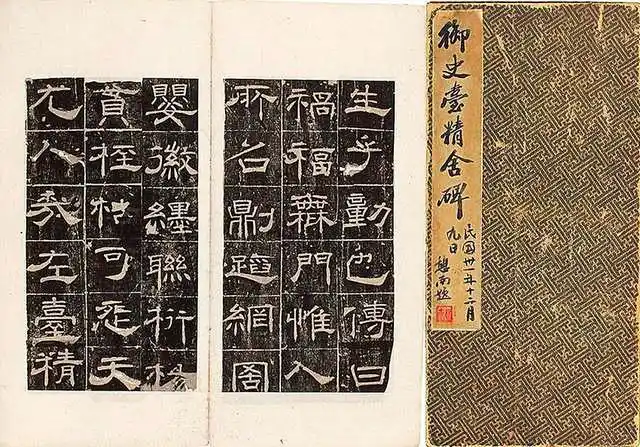 御史臺精舍碑
民國卅一年十二月
九日
生乎動也傳曰
禍福無門惟人
所召則蹈網罟
嬰徽纆聯桁楊
貫桎梏可怨天
尤人哉左臺精